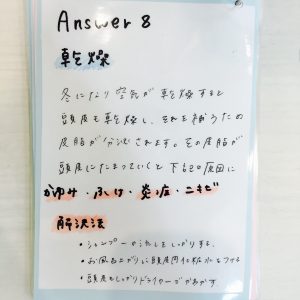 Answer 8
乾燥
冬になり空気が乾燥すると
頭皮も乾燥し、それを補うための
皮脂が分泌されます。その皮脂が
頭皮にたまっていくと下記の原因に
かゆみ・ふけ・炎症・ニキビ
解決法
・シャンプーの流しをしっかりする。
・お風呂上がりに頭皮用化粧水をつける
・頭皮もしっかりドライヤーでかわかす